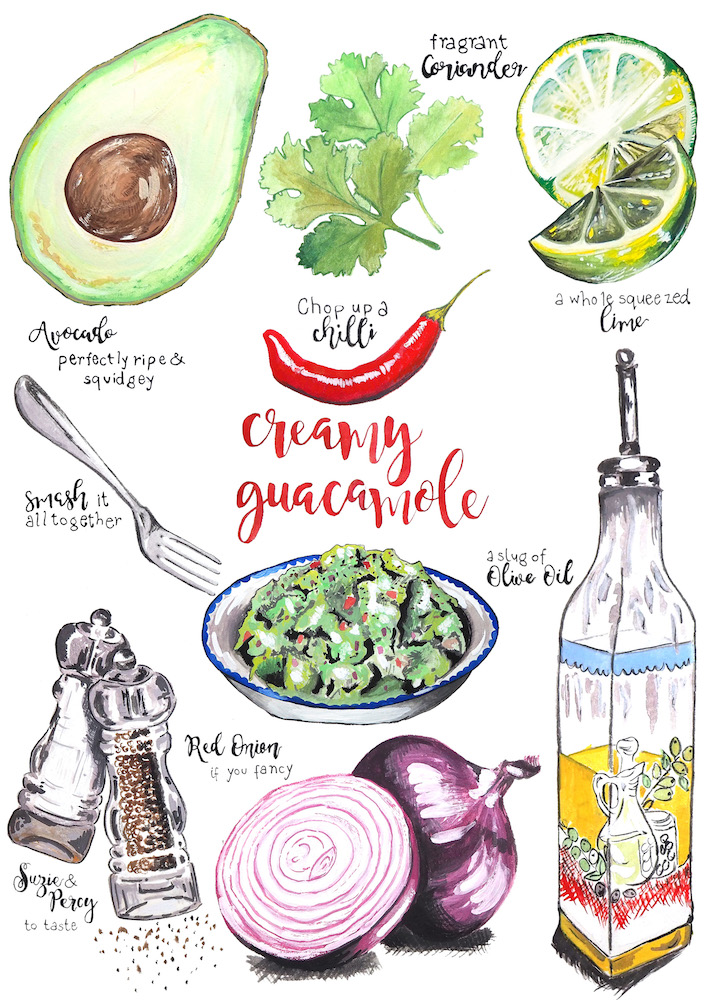 fragrant
Coriander
Avocado
perfectly ripe &
squidgey
Chop up a
chilli
a whole squeezed
lime
creamy
guacamole
smash it
all together
a slug of
Olive Oil
Red Onion
if you fancy
Suzie &
Percy
to taste